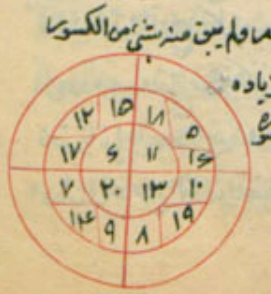 ولم يبق منه شئ من الكسور
زياده
١٢ ١٥ ١٨ ٥
١٧ ٦ ١١ ١٦
٧ ٢٠ ١٣ ١٠
١٤ ٩ ٨ ١٩